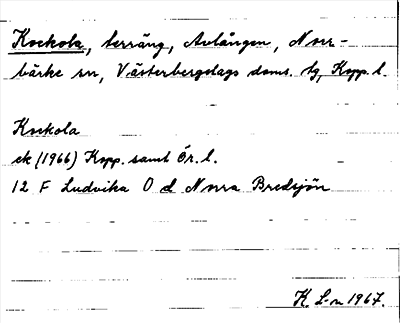 Kockola, terräng, Avlången, Norr-
bärke sn, Västerbergslags doms. tg, Kopp. l.
Kockola
ek (1966) Kopp. samt Ör. l.
12 F Ludvika O d Norra Bredsjön
K. L-n 1967.